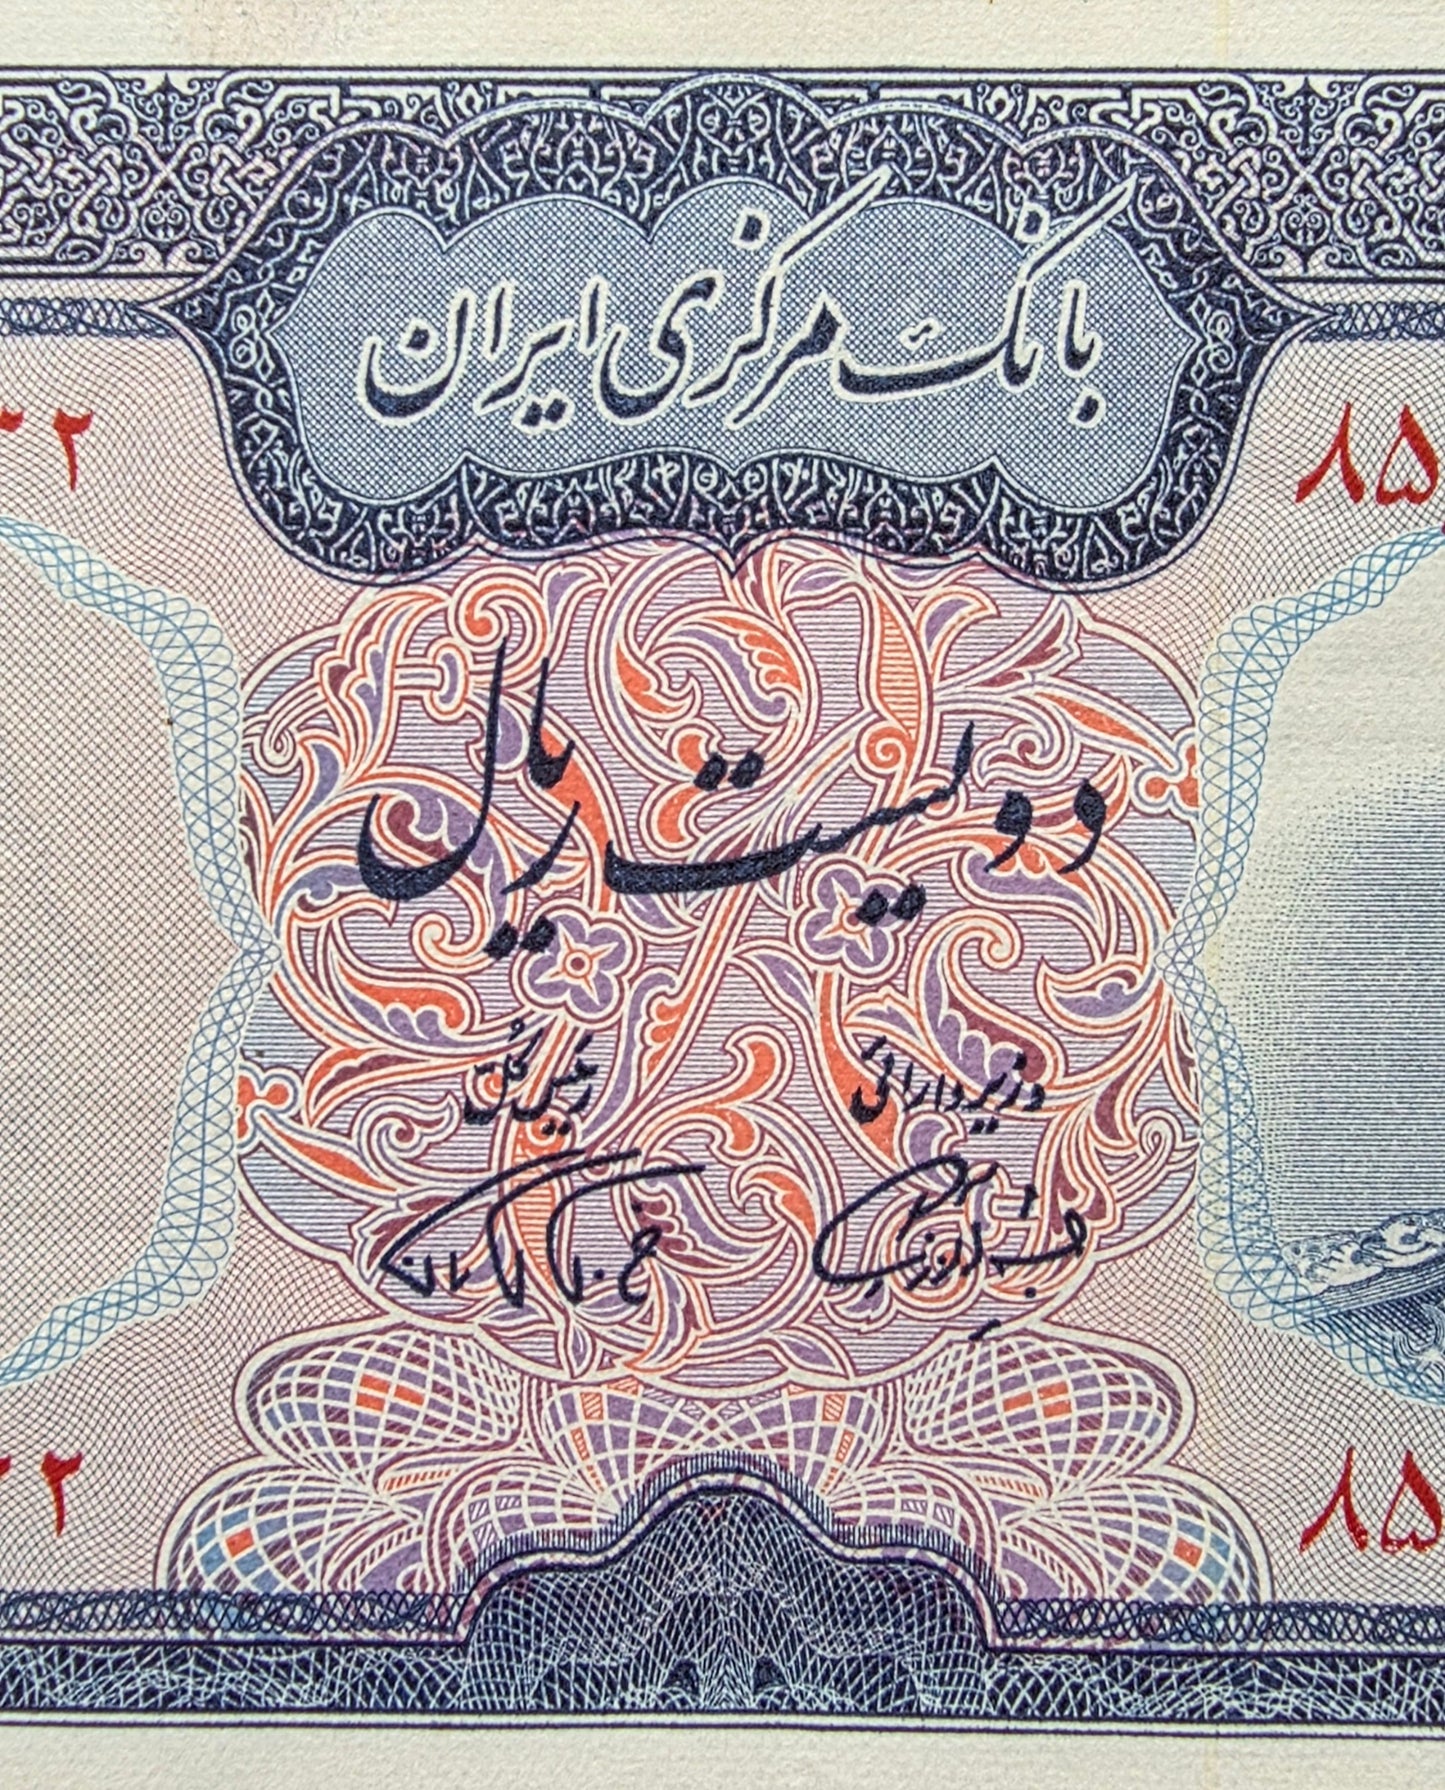 بانک مرکزی ایران
۸۵
۲۲
دویست ریال
وزیر دارائی
رئیس کل
۸۵
۲۲